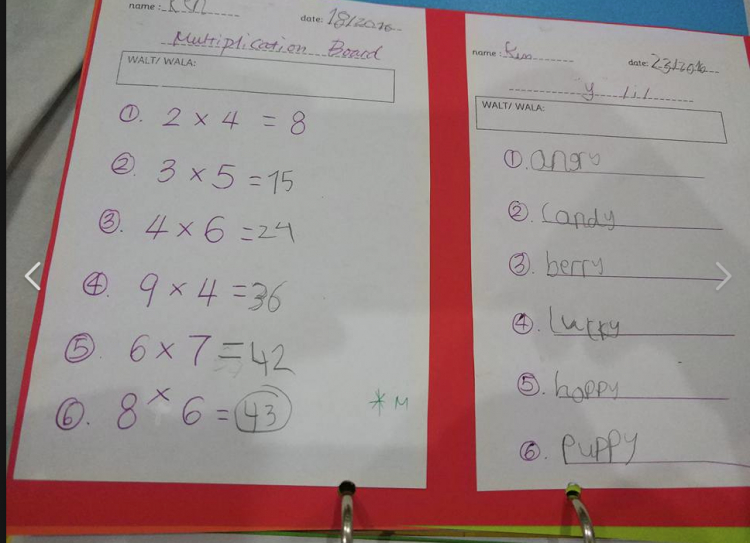 name:
date: 18/2016
Multiplication Board
WALT/ WALA:
①. 2 × 4 = 8
②. 3 × 5 = 15
③. 4 × 6 = 24
④. 9 × 4 = 36
⑤. 6 × 7 = 42
⑥. 8 × 6 = 43
* M
name:
date:
y /i/
WALT/ WALA:
①. angry
②. candy
③. berry
④. lucky
⑤. hoppy
⑥. puppy